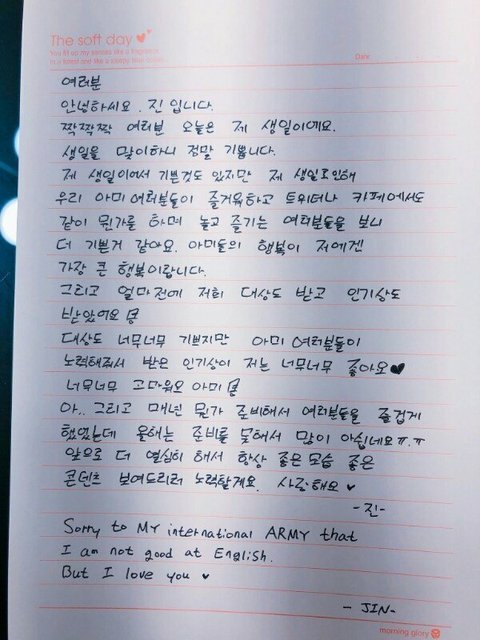 The soft day
You fill up my senses like a fragrance
in a forest and like a sleepy blue ocean.
Date
여러분
안녕하세요. 진 입니다.
짝짝짝 여러분 오늘은 제 생일이에요.
생일을 맞이하니 정말 기쁩니다.
제 생일이어서 기쁜것도 있지만 제 생일로인해
우리 아미 여러분들이 즐거워하고 트위터나 카페에서도
같이 뭔가를 하며 놀고 즐기는 여러분들을 보니
더 기쁜거 같아요. 아미들의 행복이 저에겐
가장 큰 행복이랍니다.
그리고 얼마전에 저희 대상도 받고 인기상도
받았어요!
대상도 너무너무 기쁘지만 아미 여러분들이
노력해줘서 받은 인기상이 저는 너무너무 좋아요♥
너무너무 고마워요 아미!
아.. 그리고 매년 뭔가 준비해서 여러분들을 즐겁게
했었는데 올해는 준비를 못해서 많이 아쉽네요ㅠ.ㅠ
앞으로 더 열심히 해서 항상 좋은 모습 좋은
콘텐츠 보여드리려 노력할게요. 사랑해요 ♥
-진-
Sorry to MY international ARMY that
I am not good at English.
But I love you ♥
- JIN-
morning glory